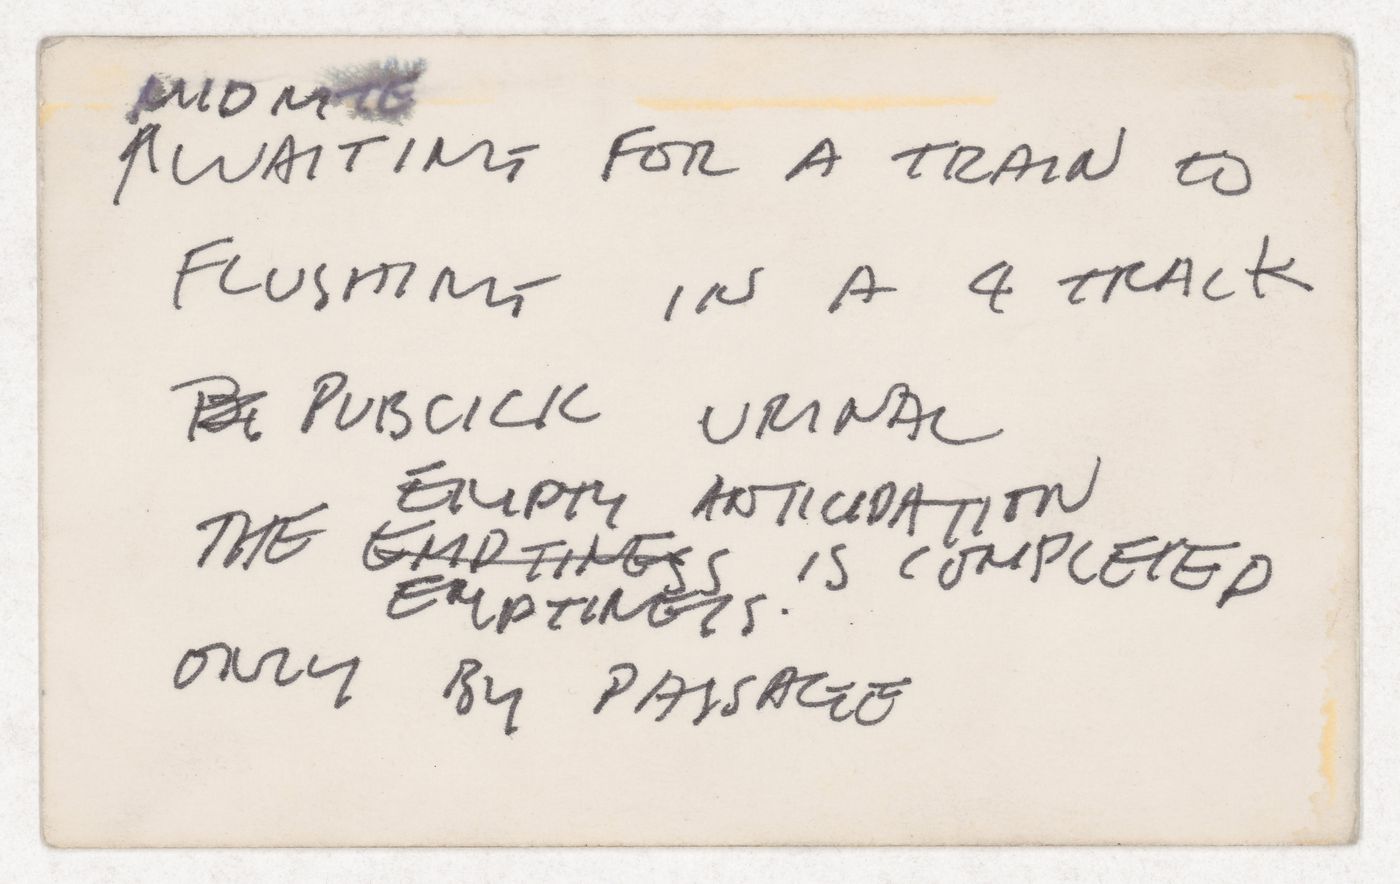 MIDNITE
AWAITING FOR A TRAIN TO
FLUSHING IN A 4 TRACK
PUBLICK URINAL
EMPTY ANTICIPATION
THE EMPTINESS IS COMPLETED
EMPTINESS.
ONLY BY PASSAGE